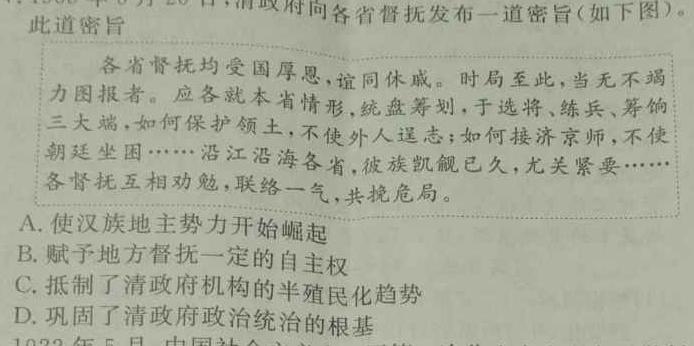 日,清政府向各省督抚发布一道密旨(如下图)。
此道密旨
各省督抚均受国厚恩,谊同休戚。时局至此,当无不竭
力图报者。应各就本省情形,统盘筹划,于选将、练兵、筹饷
三大端,如何保护领土,不使外人逞志;如何接济京师,不使
朝廷坐困……沿江沿海各省,彼族凯觎已久,尤关紧要……
各督抚互相劝勉,联络一气,共挽危局。
A. 使汉族地主势力开始崛起
B. 赋予地方督抚一定的自主权
C. 抵制了清政府机构的半殖民化趋势
D. 巩固了清政府政治统治的根基